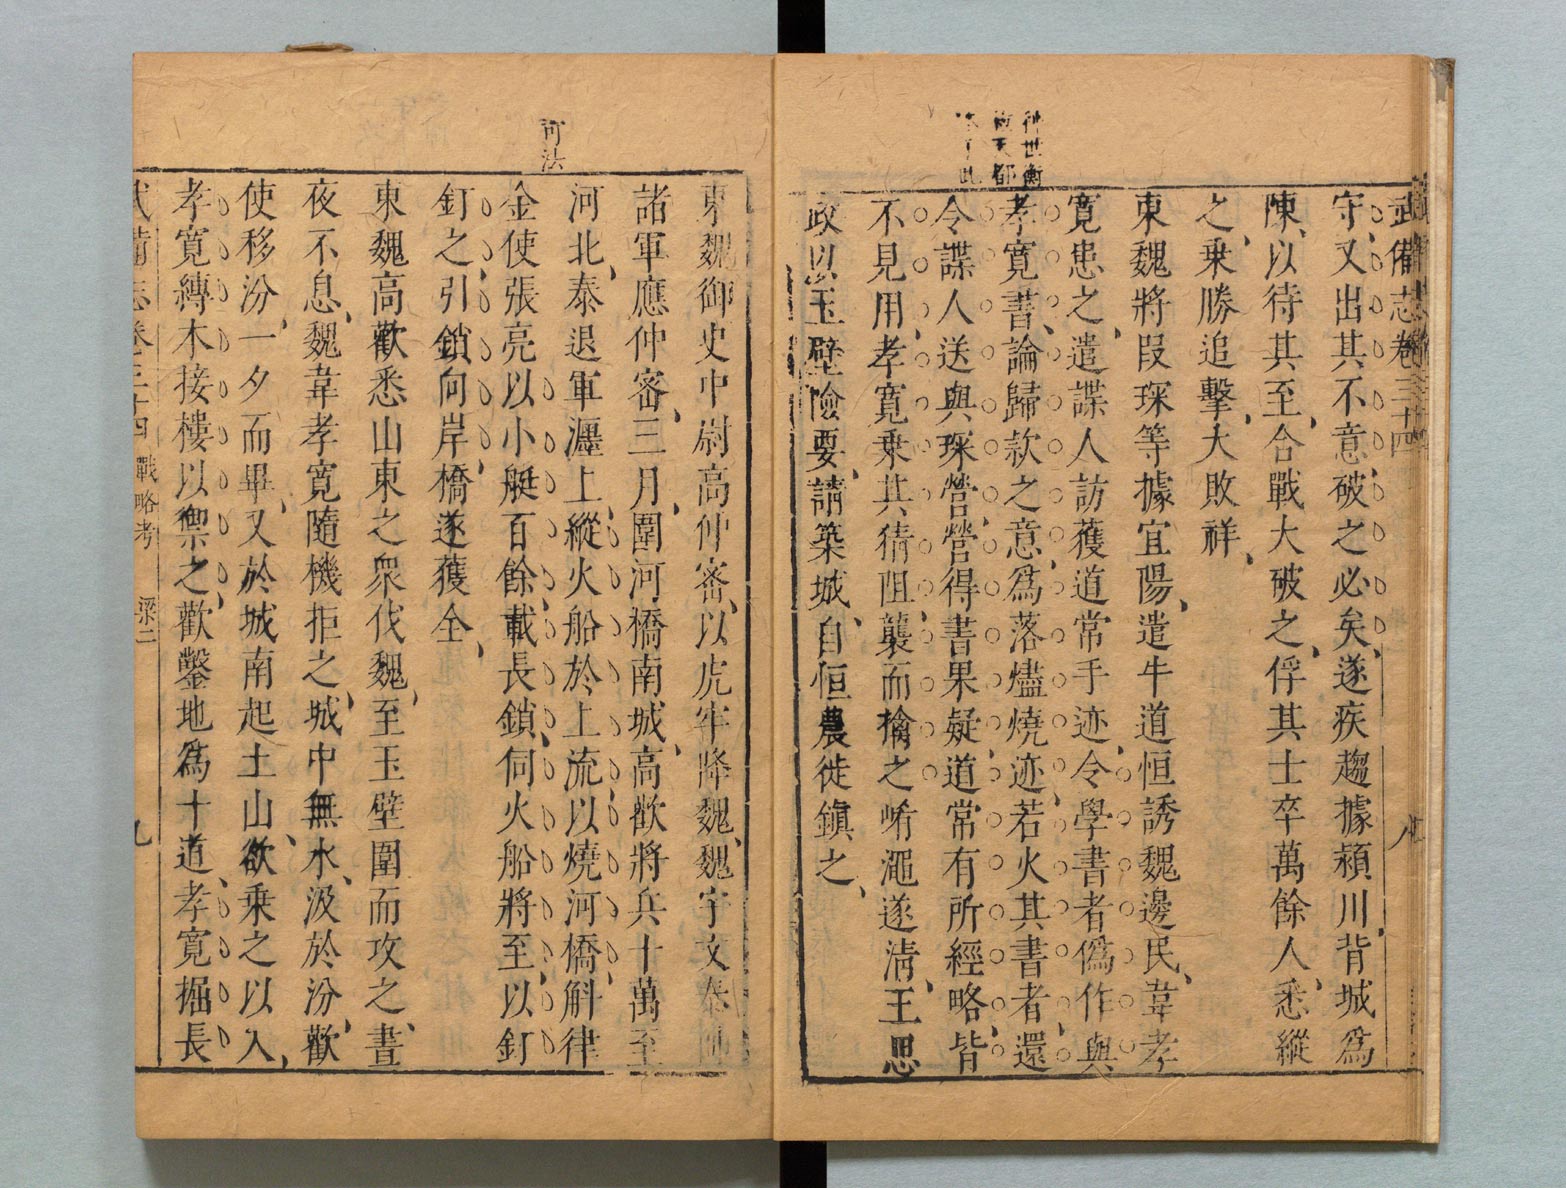 武備志卷三十四
八
种世衡
都
此
守、又出其不意、破之必矣、遂疾趨據潁川、背城爲
陳、以待其至、合戰大破之、俘其士卒萬餘人、悉縱
之、乗勝追擊、大敗祥、
東魏將段琛等據宜陽、遣牛道恒誘魏邊民、韋孝
寛患之、遣諜人訪獲道常手迹、令學書者僞作與
孝寛書、論歸款之意、爲落燼燒迹、若火其書者、還
令諜人送與琛營、營得書果疑、道常有所經略、皆
不見用、孝寛乗其猜阻、襲而擒之、崤澠遂淸、王思
政以玉壁險要、請築城、自恒農徙鎭之、
可法
東魏御史中尉高仲密、以虎牢降魏、魏宇文泰
諸軍應仲密、三月、圍河橋南城、高歡將兵十萬至
河北、泰退軍瀍上、縱火船於上流以燒河橋、斛律
金使張亮以小艇百餘、載長鎖、伺火船將至、以釘
釘之、引鎖向岸、橋遂獲全、
東魏高歡悉山東之衆伐魏、至玉壁圍而攻之、晝
夜不息、魏韋孝寛隨機拒之、城中無水、汲於汾、歡
使移汾、一夕而畢、又於城南起土山、欲乗之以入、
孝寛縛木接樓以禦之、歡鑿地爲十道、孝寛掘長
武備志卷三十四 戰略考 梁二 九